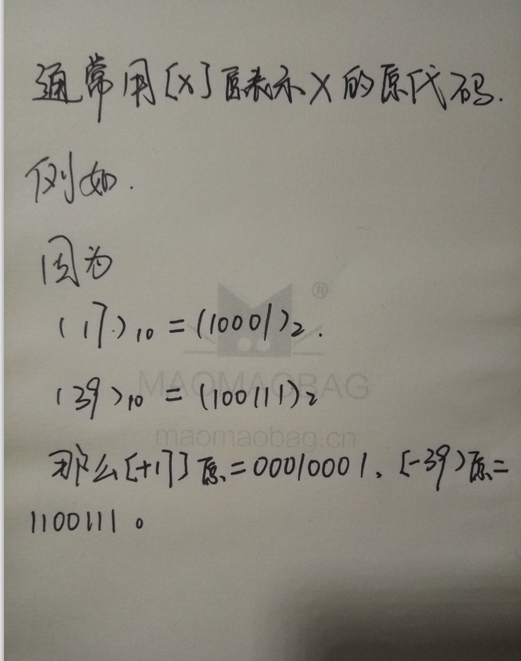 通常用[X]原表示X的原代码.
例如.
因为
(17.)10=(10001)2.
®
(39)10=(100111)2
MAOMAOBAG
maomaobag.cn
那么[+17]原=00010001、[-39)原=
1100111。